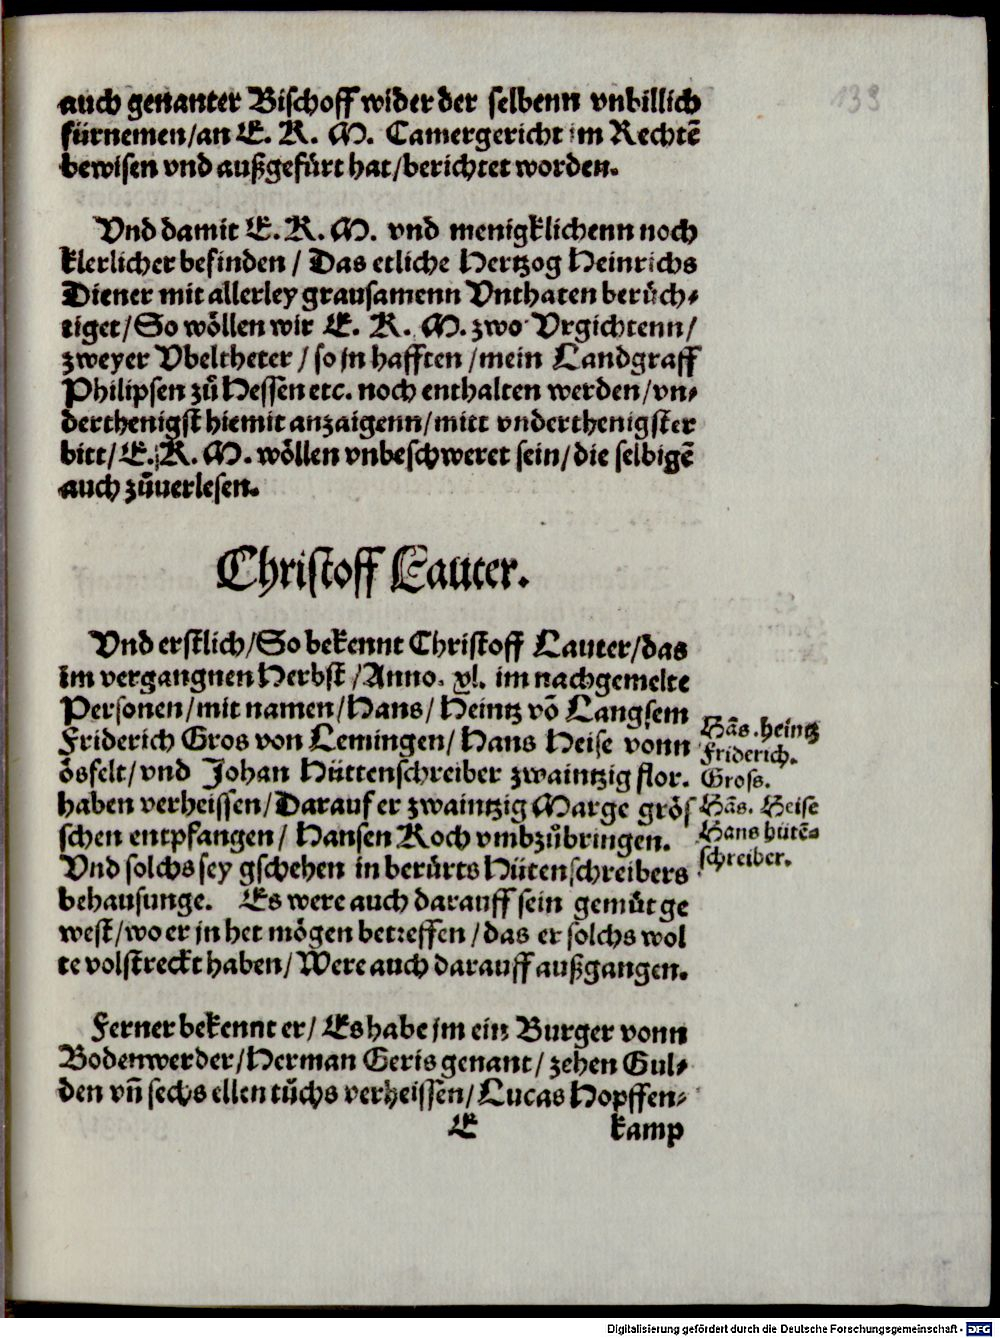 139
auch genanter Bischoff wider der selbenn vnbillich
fürnemen/an E. R. M. Camergericht im Rechtē
bewisen vnd außgefürt hat/berichtet worden.
Vnd damit E. R. M. vnd menigklichenn noch
klerlicher befinden / Das etliche Hertzog Heinrichs
Diener mit allerley grausamenn Vnthaten berüch⸗
tiget/So wöllen wir E. R. M. zwo Vrgichtenn/
zweyer Vbeltheter / so jn hafften /mein Landgraff
Philipsen zů Hessen etc. noch enthalten werden/vn⸗
derthenigst hiemit anzaigenn/mitt vnderthenigster
bitt/E. R. M. wöllen vnbeschweret sein/die selbigē
auch zůuerlesen.
Christoff Lauter.
Vnd erstlich/So bekennt Christoff Lauter/das
im vergangnen Herbst /Anno. xl. im nachgemelte
Personen/mit namen/Hans/ Heintz vō Langsem
Friderich Gros von Lemingen/ Hans Heise vonn
ösfelt/vnd Johan Hüttenschreiber zwaintzig flor.
haben verheissen/Darauf er zwaintzig Marge grös
schen entpfangen/ Hansen Koch vmbzůbringen.
Vnd solchs sey gschehen in berürts Hütenschreibers
behausunge. Es were auch darauff sein gemüt ge
west/wo er jn het mögen betreffen /das er solchs wol
te volstreckt haben/ Were auch darauff außgangen.
Hās. heintz
Friderich.
Gross.
Hās. Heise
Hans hütē⸗
schreiber.
Ferner bekennt er/ Es habe jm ein Burger vonn
Bodenwerder/Herman Geris genant/ zehen Gul⸗
den vn̄ sechs ellen tůchs verheissen/ Lucas Hopffen⸗
E kamp
Digitalisierung gefördert durch die Deutsche Forschungsgemeinschaft - DFG